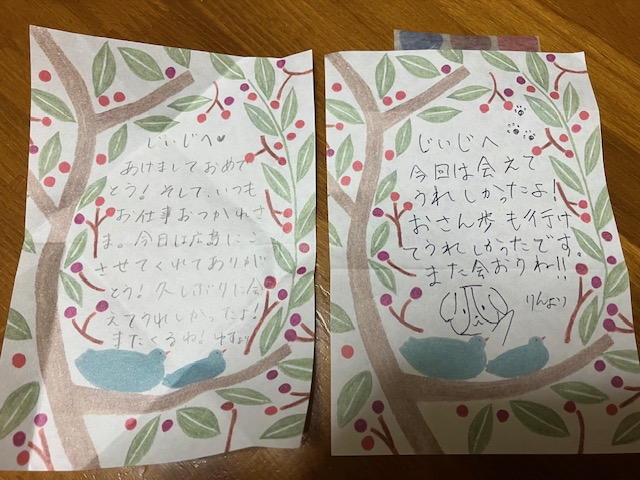 じいじへ♥
あけましておめで
とう!そして、いつも
お仕事おつかれさ
ま。今日は広島にこ
させてくれてありが
とう!久しぶりに会
えてうれしかったよ!
またくるね!
じいじへ
今回は会えて
うれしかったよ!
おさん歩も行け
てうれしかったです。
また会おうね!!
りんより